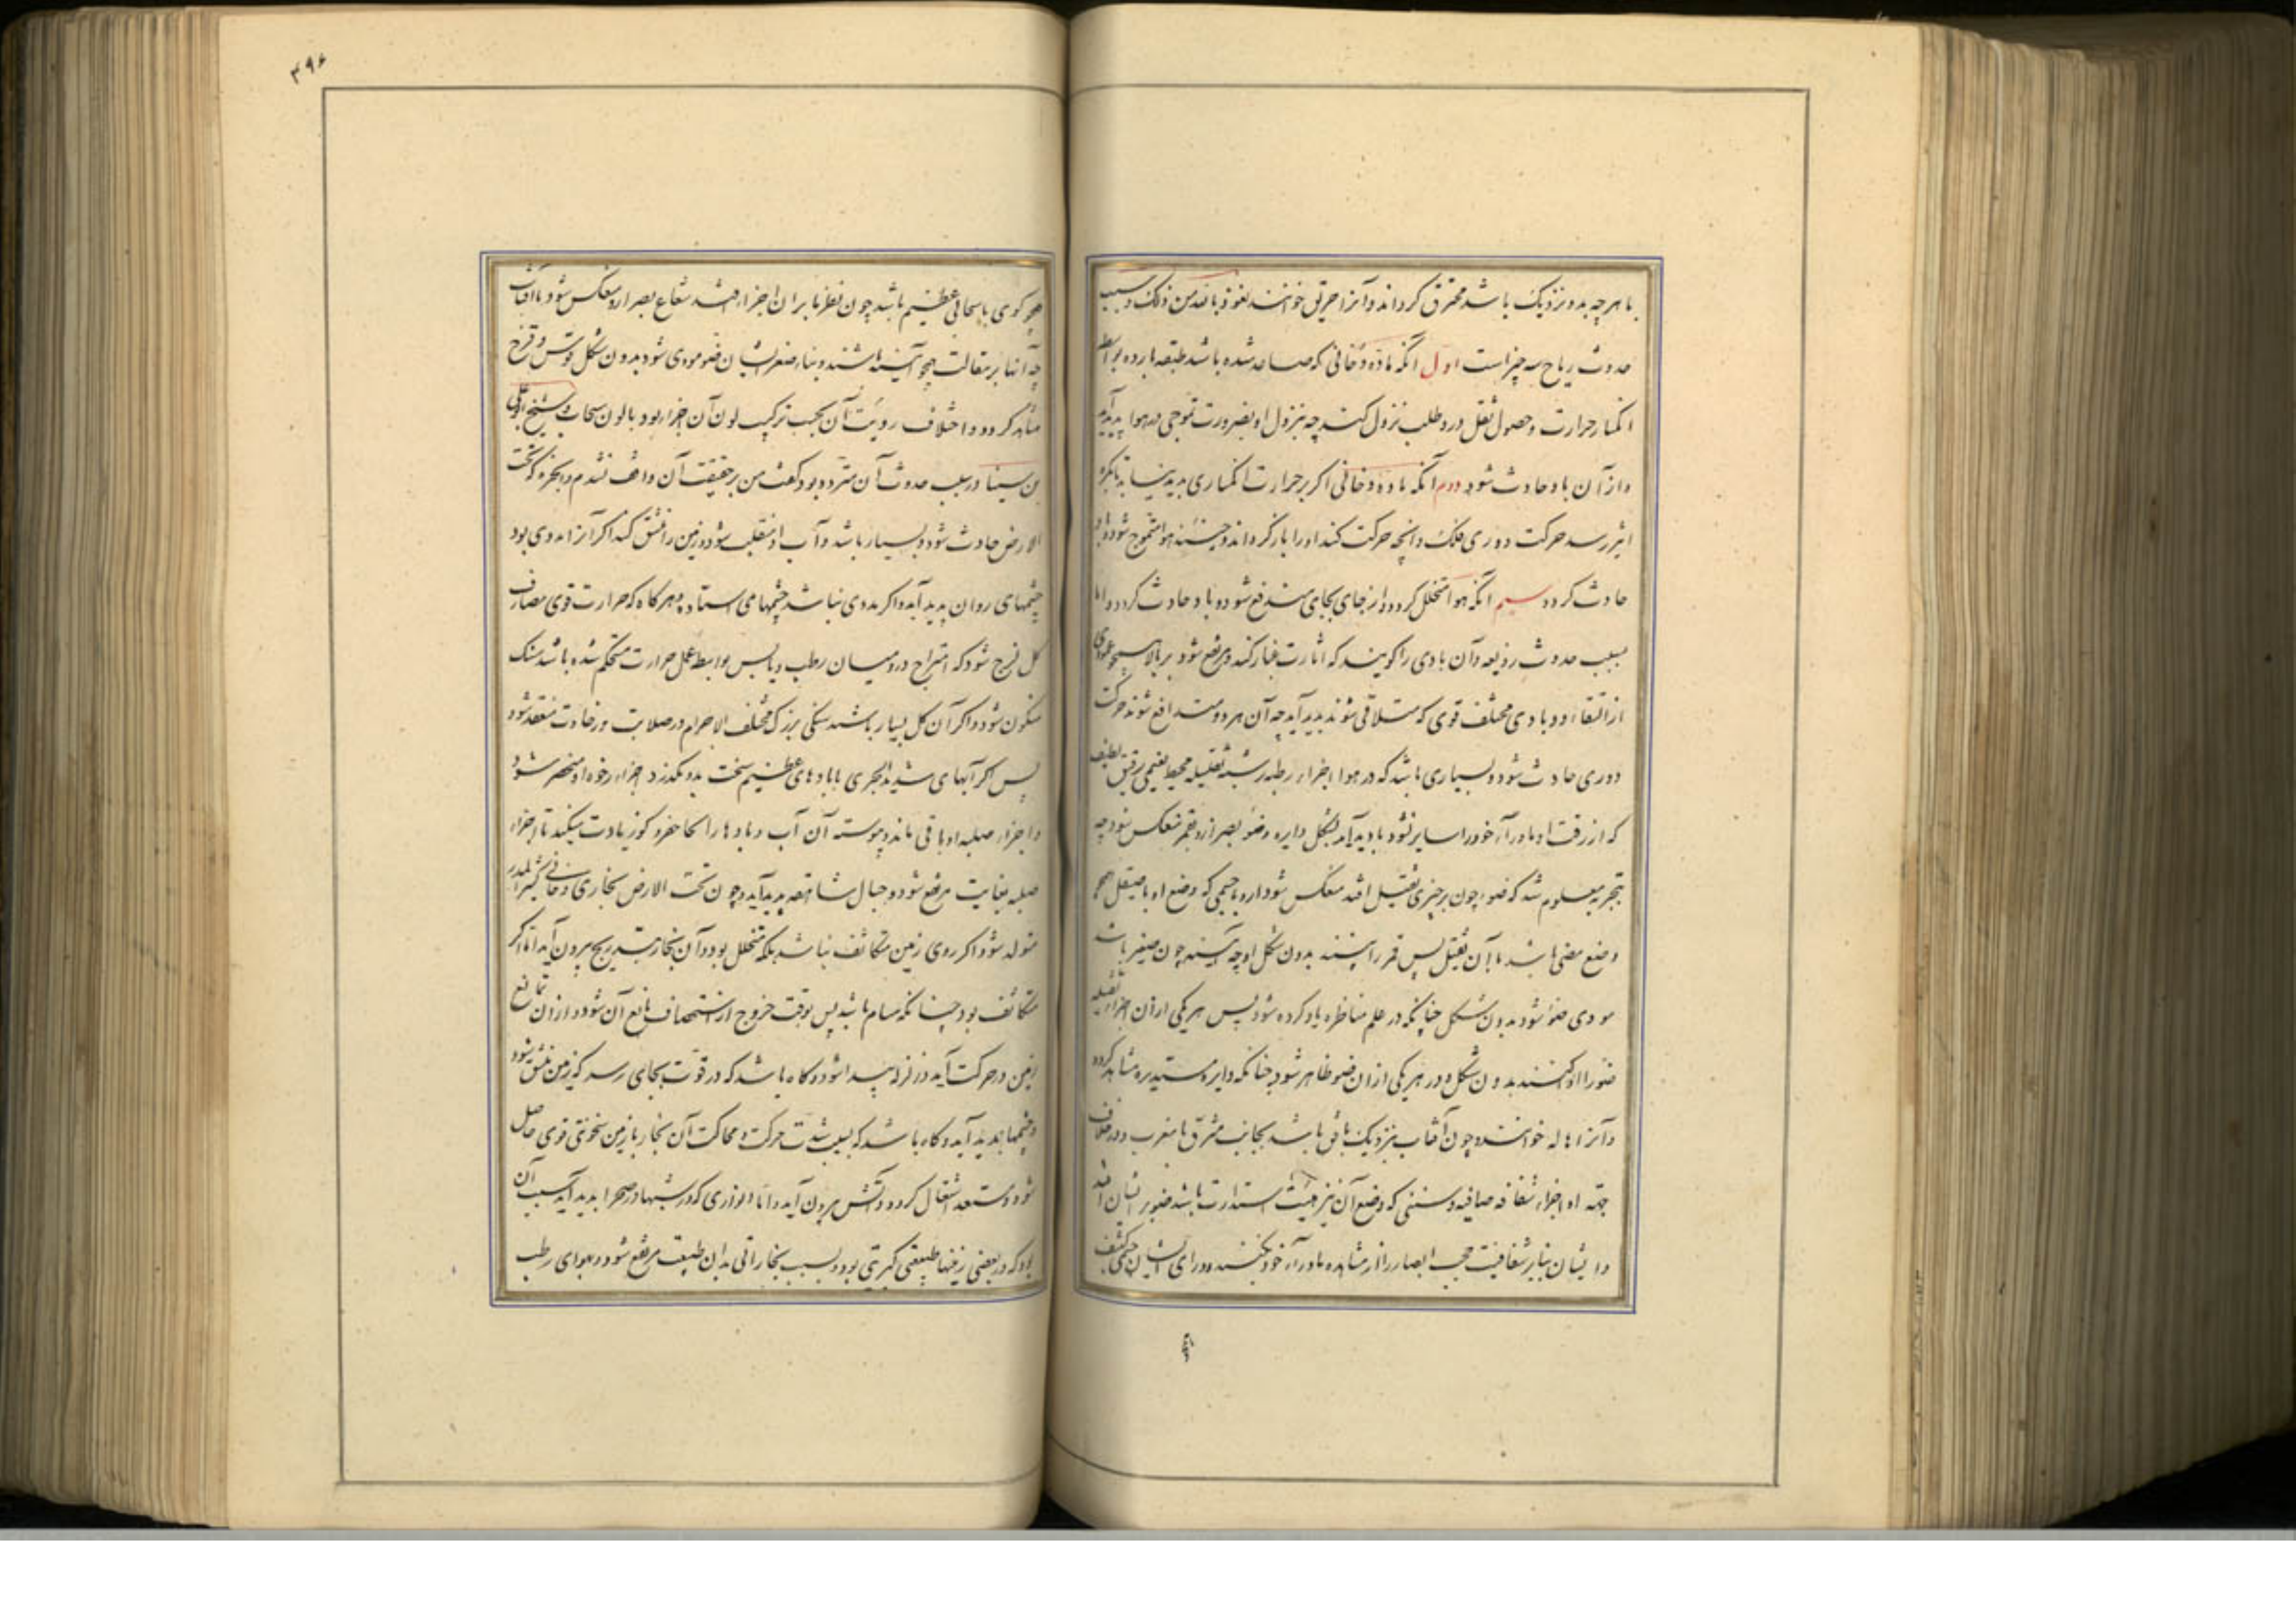 با هرچه بدو نزدیک باشد محترق کرداند و آنرا حریق خوانند نعوذ بالله من ذلک و سبب
حدوث ریاح سه چیز است اول آنکه ماده دخانی که صاعد شده باشد بطبقه بارده بواسطه
انکسار حرارت و حصول ثقل درو طلب نزول کند چه بنزول او بضرورت تموجی در هوا پدید آید
و از آن باد حادث شود دوم آنکه ماده دخانی اکر بر حرارت انکساری پدید نیاید تا بکره
اثیر رسد حرکت دوری فلک و آنچه حرکت کند او را بازکرداند و هوا متموج شود و باد
حادث کردد سیم آنکه هوا متخلخل کردد و از جای بجای مندفع شود و باد حادث کردد و اما
سبب حدوث زوبعه و آن بادی را کویند که اثارت غبار کند و مرتفع شود بر بالا همچو عمودی
از التقاء دو بادی مختلف قوی که متلاقی شوند پدید آید چه آن هر دو متدافع شوند حرکت
دوری حادث شود و بسیاری باشد که در هوا اجزاء رطبه رشیه ثقیله محیط بغیمی رقیق لطیف
که از رقت او ماوراء خود را ساتر نشود بادید آید بشکل دایره و ضوء بصر ازو بقمر منعکس شود چه
بتجربه معلوم شد که ضوء چون بر چیزی ثقیل افتد منعکس شود ازو با جسمی که وضع او با صیقل همچو
وضع مضی باشد با آن ثقیل پس قمر را بینند بدون شکل او چه آینه چون صغیر باشد
مودی ضوء شود بدون شکل چنانکه در علم مناظره یاد کرده شود پس هر یکی از ان اجزاء ثقیله
ضوء را ادا کنند بدون شکل و در هر یکی از ان ضوء ظاهر شود چنانکه دایره مستدیره مشاهد کردد
و آنرا هاله خوانند و چون آفتاب نزدیک بافق باشد بجانب مشرق یا مغرب و در خلاف
جهه او اجزاء شفافه صافیه و سنی که وضع آن نیز هیئت استدارت باشد ضوء بر ایشان افتد
و ایشان بنابر شفافیت حجب ابصار را از مشاهده ماوراء خود نکنند و ورای ایشان جسمی کثیف
۴۹۶
همچو کوهی یا سحابی عظیم باشد چون نظر ما بر ان اجزاء افتد شعاع بصر ازو منعکس شود با آفتاب
چه آنها بر مقالت همچو آینه باشند و بناء صغر ایشان ضوء مودی شود بدون شکل و قوس و قزح
مشاهد کردد و اختلاف رویت آن بحسب ترکیب لون آن اجزاء بود با لون سحاب و شیخ ابوعلی
بن سینا در سبب حدوث آن متردد بود کفت من بر حقیقت آن واقف نشدم و ابخره که تحت
الارض حادث شود و بسیار باشد و آب او منقلب شود و زمین را منشق کند اکر آنرا مددی بود
چشمهای روان پدید آید و اکر مددی نباشد چشمهای استاده و هرکاه که حرارت قوی مصادف
کل لزج شود که امتزاج در و میان رطب و یابس بواسطه عمل حرارت مستحکم شده باشد سنک
متکون شود و اکر آن کل بسیار باشد سنکی بزرک مختلف الاجرام در صلابت و رخاوت منعقد شود
پس اکر آبهای شدید الجری یا بادهای عظیم سخت بدو بکذرد اجزاء رخوه او منحفر شود
و اجزاء صلبه او باقی ماند و پیوسته آن آب و بادها را کجا حفر و کوز یادت میکند تا اجزاء
صلبه بغایت مرتفع شود و جبال شاهقه پدید آید و چون تحت الارض بخاری و دخانی کثیر المدد
متولد شود اکر روی زمین متکاثف نباشد بلکه متخلخل بود و آن بخار بتدریج بیرون آید اما اکر
متکاثف بود چنانکه مسام باشد پس بوقت خروج از استحصاف مانع آن شود و از ان تمانع
زمین در حرکت آید و زلزله پیدا شود و کاه باشد که در قوت بجای رسد که زمین منشق شود
و چشمها پدید آید و کاه باشد که بسبب شدت حرکت و محاکت آن بخار با زمین سخونتی قوی حاصل
شود و مستعد اشتعال کردد و آتش بیرون آید و اما انواری که در شبها در صحرا پدید آید سبب آن
بود که در بعضی زمینها طبیعتی کبریتی بود و بسبب بخاراتی بدان طبیعت مرتفع شود در هوای رطب